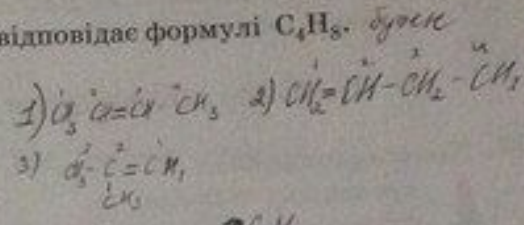 відповідає формулі C₄H₈. бутен
1) CH₃ CH=CH CH₃ 2) CH₂=CH-CH₂-CH₃
3) CH₃-C=CH₂
CH₃